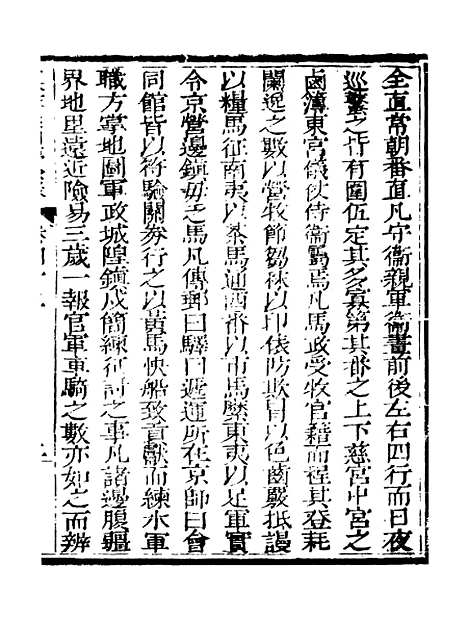 全直常朝番直凡守衞親軍衞畫前後左右四行而日夜
巡警之皆有圍伍定其多寡第其番之上下慈宮中宮之
鹵簿東宮儀仗侍衞屬焉凡馬政受牧官籍而程其登耗
闌逸之數以營牧節芻秣以印俵防欺冒以色齒嚴抵謾
以糧馬征南夷以茶馬通西番以市馬縻東夷以足軍實
令京營邊鎮毋乏馬凡傳郵曰驛曰遞運所在京師曰會
同館皆以符驗關劵行之以黃馬快船致貢獻而練水軍
職方掌地圖軍政城隍鎮戍簡練征討之事凡諸邊腹疆
界地里遠近險易三歲一報官軍車騎之數亦如之而辨